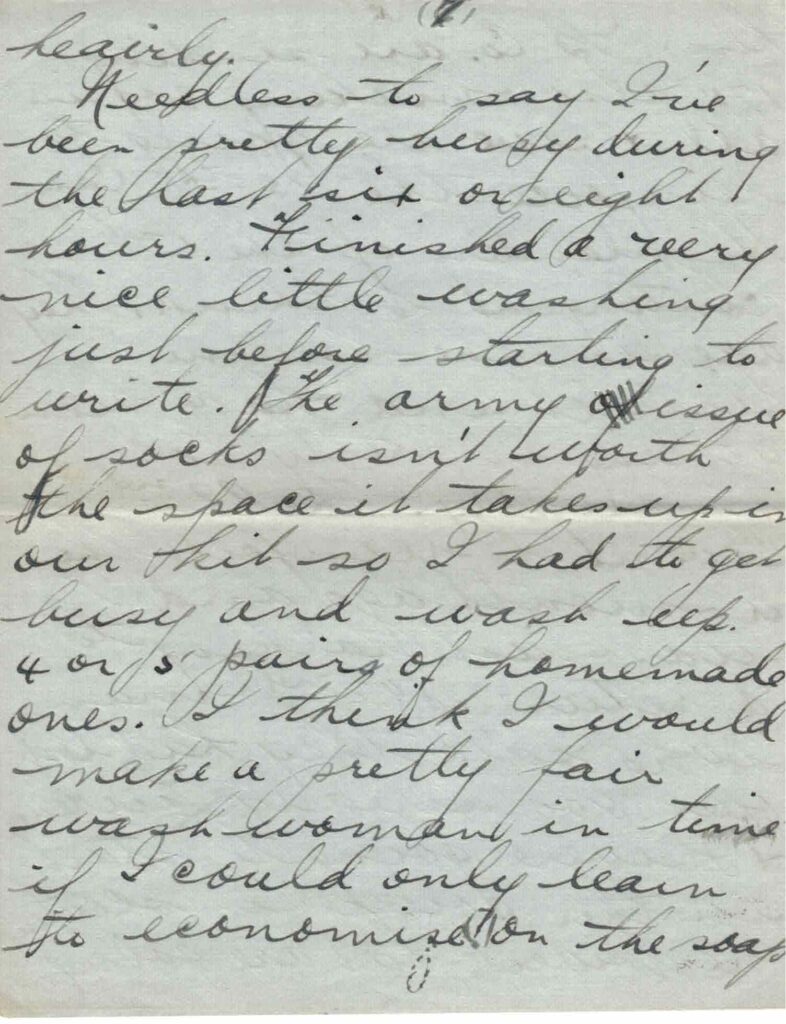 (7)
heairly.
Needless to say I've
been pretty busy during
the last six or eight
hours. Finished a very
nice little washing
just before starting to
write. The army issue
of socks isn't worth
the space it takes up in
our kit so I had to get
busy and wash up.
4 or 5 pairs of homemade
ones. I think I would
make a pretty fair
wash woman in time
if I could only learn
to economise on the soap